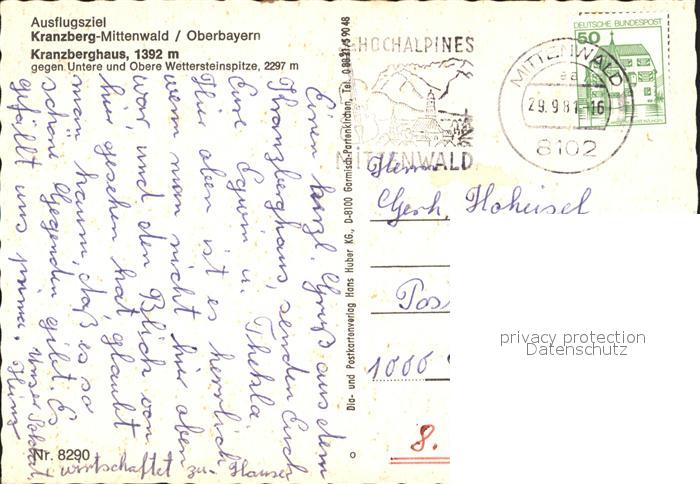 Ausflugsziel
Kranzberg-Mittenwald / Oberbayern
Kranzberghaus, 1392 m
gegen Untere und Obere Wettersteinspitze, 2297 m
Einen herzl. Gruß aus dem
Kranzberghaus, senden Euch
Eure Egwin u. Thekla
Hier oben ist es herrlich
wenn man nicht hier oben
war, und den Blick von
hier gesehen hat, glaubt
man kaum, daß es so
schöne Gegenden gibt. Es
gefällt uns prima.
Unser
Heinz
wirtschaftet zu Hause
Nr. 8290
Dia- und Postkartenverlag Hans Huber KG., D-8100 Garmisch-Partenkirchen, Tel. 0 88 21/5 90 48
HOCHALPINES
MITTENWALD
MITTENWALD
29.9.81-16
8102
DEUTSCHE BUNDESPOST
50
Herrn
Gerh. Hoheisel
Pos
1000
8.
privacy protection
Datenschutz